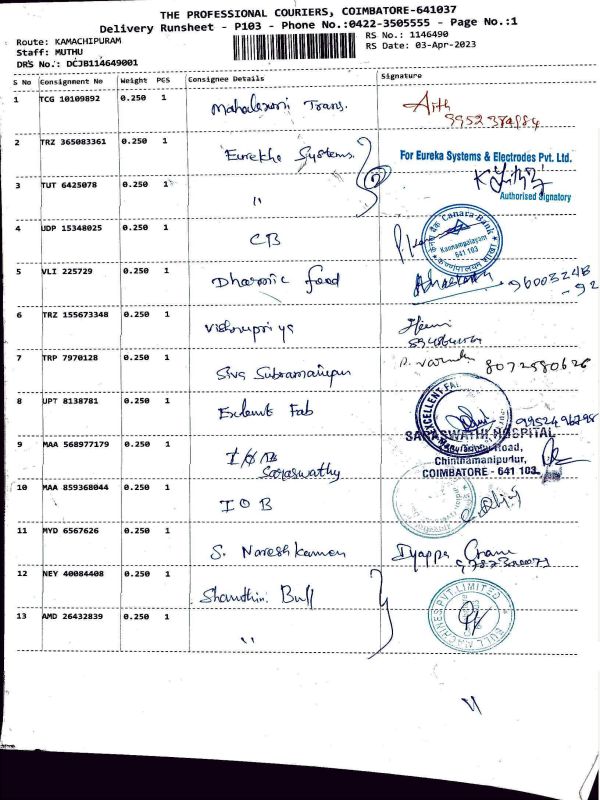 THE PROFESSIONAL COURIERS, COIMBATORE-641037
Delivery Runsheet - P103 - Phone No.:0422-3505555 - Page No.:1
Route: KAMACHIPURAM
Staff: MUTHU
DRS No.: DCJB114649001
RS No.: 1146490
RS Date: 03-Apr-2023
S No Consignment No Weight PCS Consignee Details Signature
1 TCG 10109892 0.250 1 Mahalaxmi Trans.
2 TRZ 365083361 0.250 1 Eurekha Systems.
For Eureka Systems & Electrodes Pvt. Ltd.
Authorised Signatory
3 TUT 6425078 0.250 1 "
4 UDP 15348025 0.250 1 CB
Canara Bank
Kannampalayam
641 103
5 VLI 225729 0.250 1 Dharmic food
9600324B
-92
6 TRZ 155673348 0.250 1 Vishnupriya
7 TRP 7970128 0.250 1 Siva Subramaniyan
8072580626
8 UPT 8138781 0.250 1 Exlent Fab
EXCELLENT FA
9 MAA 568977179 0.250 1 Saraswathy
SARASWATHI HOSPITAL
Road,
Chinthamanipudur,
COIMBATORE - 641 103.
10 MAA 859368044 0.250 1 I O B
11 MYD 6567626 0.250 1 S. Nareshkumar
12 NEY 40084408 0.250 1 Shanthini Bull
13 AMD 26432839 0.250 1 "
BULL MACHINES PVT. LIMITED